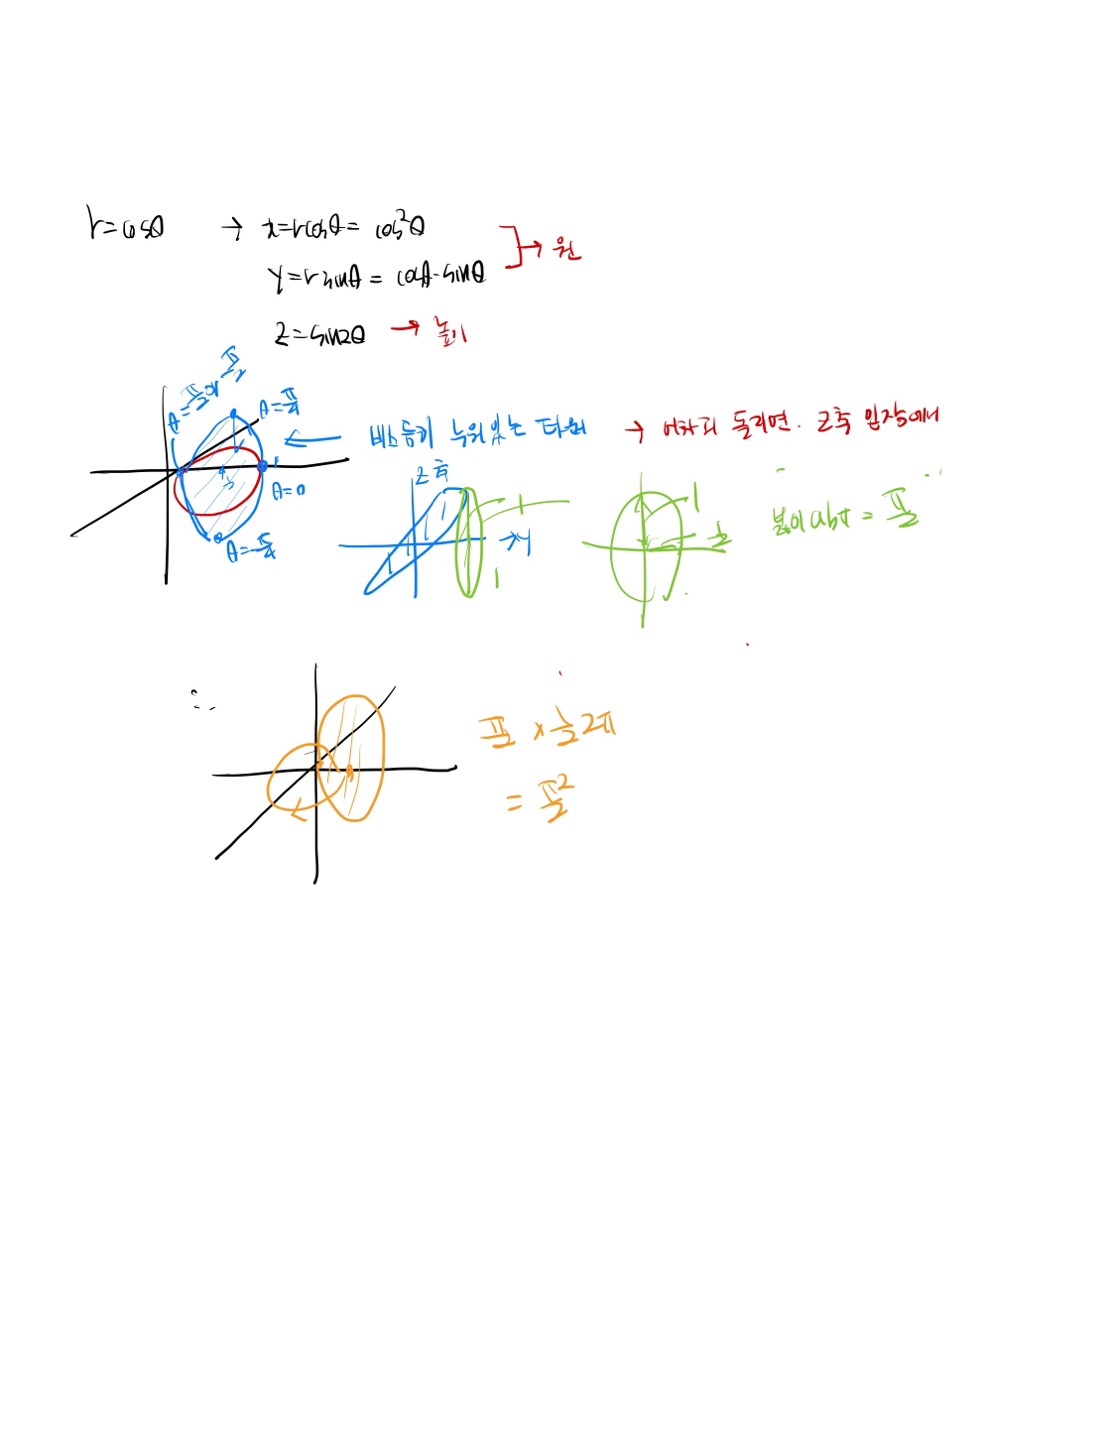 r=cosθ → x=rcosθ= cos²θ
y=rsinθ = cosθ·sinθ
→ 원
z=sin2θ → 높이
θ=π/2 or -π/2
θ=π/4
θ=0
θ=-π/4
비스듬히 누워있는 타원 → 어차피 돌리면. z축 입장에서
z축
→y
1
1
1/2
넓이 abπ = π/2
∴
π/2 × 1/2 2π
= π²/2